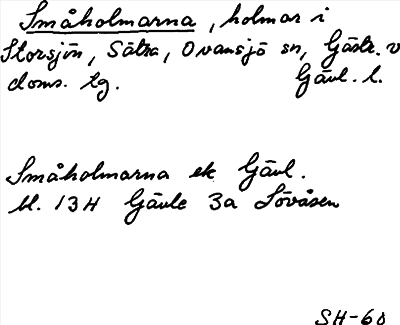 Småholmarna, holmar i
Storsjön, Sätra, Ovansjö sn, Gästr. v
doms. lg. Gävl. l.
Småholmarna ek Gävl.
bl. 13H Gävle 3a Lövåsen
SH-60